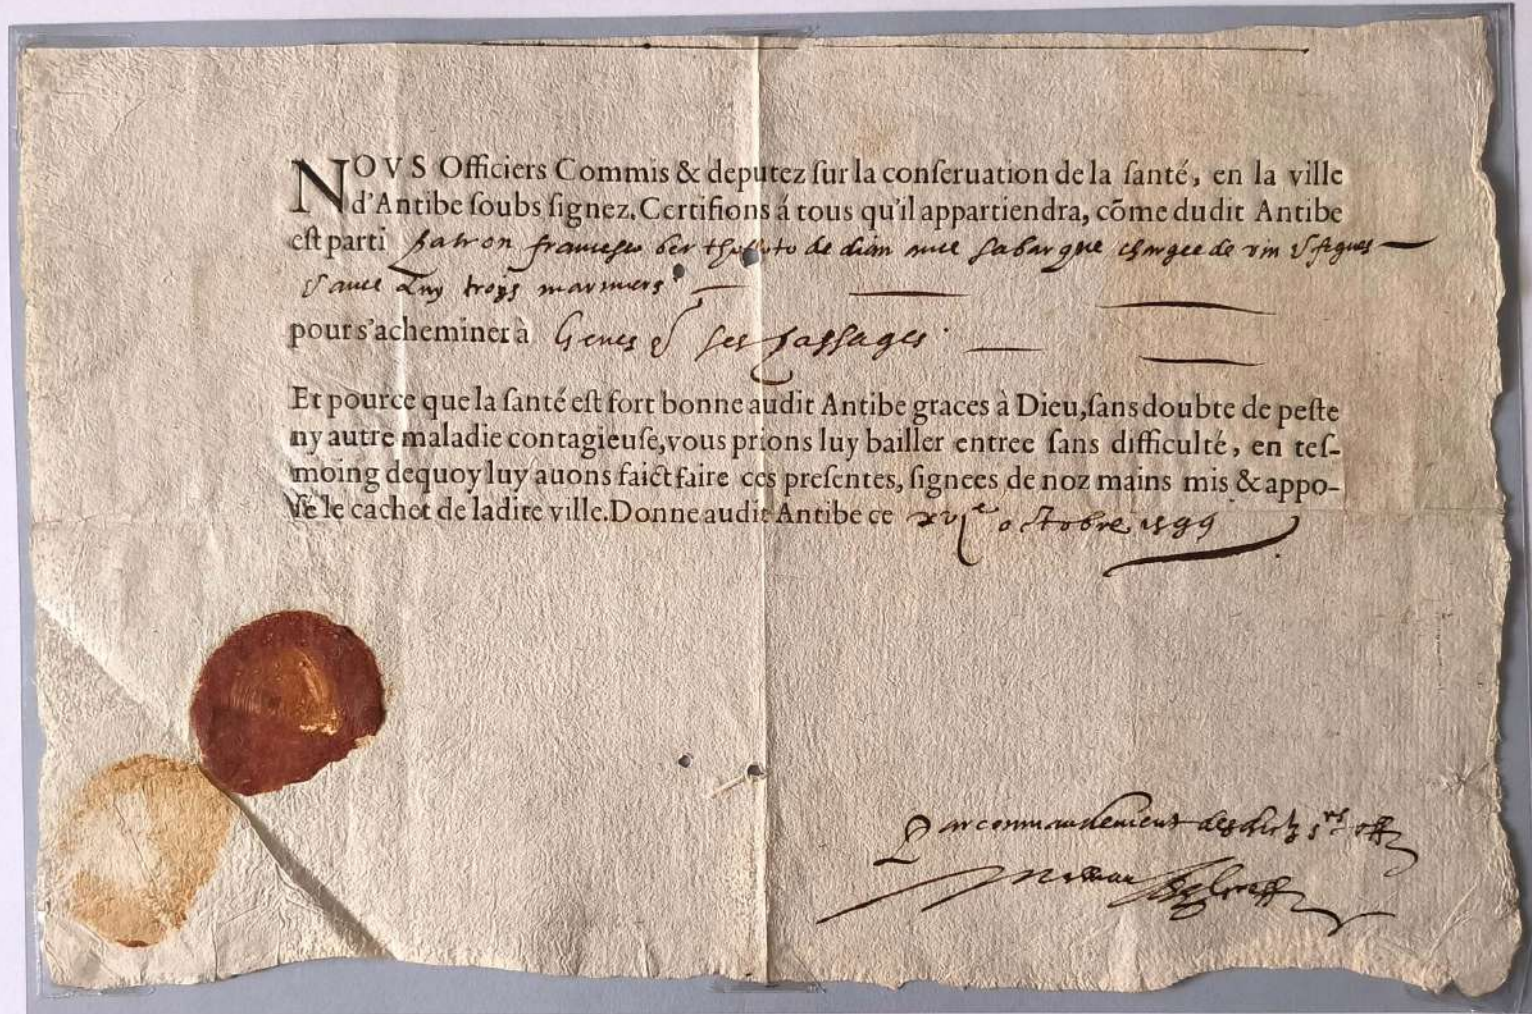 NOVS Officiers Commis & deputez ſur la conſeruation de la ſanté, en la ville
d'Antibe ſoubs ſignez. Certifions á tous qu'il appartiendra, cõme dudit Antibe
eſt parti patron franceſco de dian avec ſa barque chargee de vin & figues
& avec Luy troys mariniers
pour s'acheminer à Genes & ſes paſſages
Et pource que la ſanté eſt fort bonne audit Antibe graces à Dieu, ſans doubte de peſte
ny autre maladie contagieuſe, vous prions luy bailler entree ſans difficulté, en teſ-
moing dequoy luy auons faict faire ces preſentes, ſignees de noz mains mis & appo-
ſé le cachet de ladite ville. Donne audit Antibe ce xvjᵉ octobre 1599
Par commandement deſdictz sʳˢ off